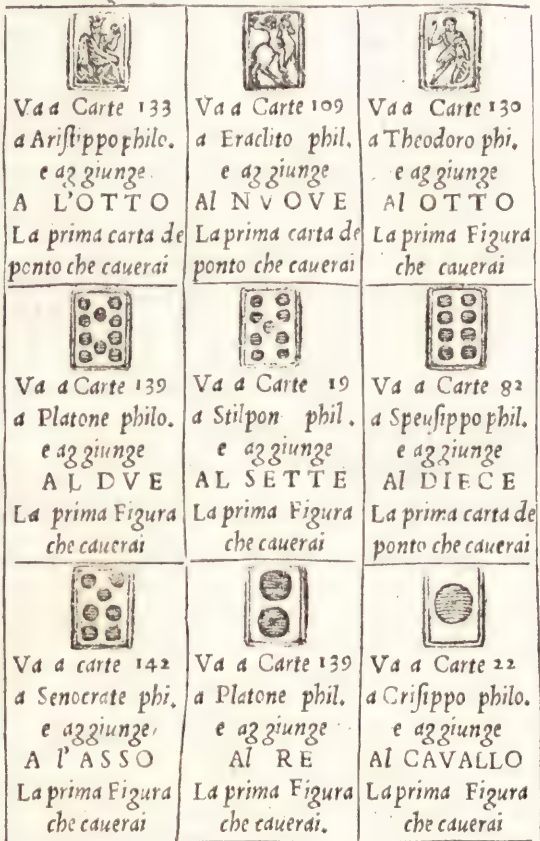 Va a Carte 133
a Ariſtippo philo.
e aggiunge
A L'OTTO
La prima carta de
ponto che cauerai
Va a Carte 109
a Eraclito phil.
e aggiunge
Al NVOVE
La prima carta de
ponto che cauerai
Va a Carte 130
a Theodoro phi.
e aggiunge
Al OTTO
La prima Figura
che cauerai
Va a Carte 139
a Platone philo.
e aggiunge
AL DVE
La prima Figura
che cauerai
Va a Carte 19
a Stilpon phil.
e aggiunge
AL SETTE
La prima Figura
che cauerai
Va a Carte 82
a Speuſippo phil.
e aggiunge
Al DIECE
La prima carta de
ponto che cauerai
Va a carte 142
a Senocrate phi.
e aggiunge
A l'ASSO
La prima Figura
che cauerai
Va a Carte 139
a Platone phil.
e aggiunge
Al RE
La prima Figura
che cauerai.
Va a Carte 22
a Criſippo philo.
e aggiunge
Al CAVALLO
La prima Figura
che cauerai